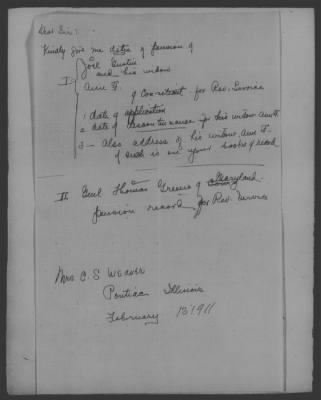 Dear Sir:
Kindly give me dates of pension of
I Joel
and his widow
Ann F.
of Connecticut for Rev. Service
1 date of application
2 date of for his widow Ann F.
3 – Also address of his widow Ann F.
if such is on your books of record
II Genl Thomas Greene of Maryland
pension record for Rev. Service
Mrs C. S. Weaver
Pontiac Illinois
February 13 1911